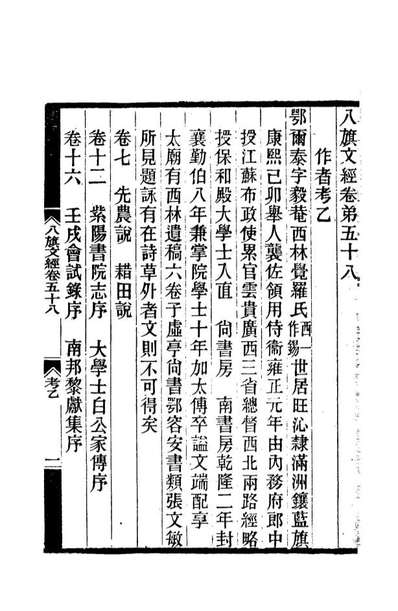 八旗文經卷弟五十八
作者考乙
鄂爾泰字毅菴西林覺羅氏西一作錫世居旺沁隸滿洲鑲藍旗
康熙己卯舉人襲佐領用侍衞雍正元年由內務府郎中
投江蘇布政使累官雲貴廣西三省總督西北兩路經略
授保和殿大學士入直　尙書房　南書房乾隆二年封
襄勤伯八年兼掌院學士十年加太傅卒謚文端配享
太廟有西林遺稿六卷子虛亭尙書鄂容安書類張文敏
所見題詠有在詩草外者文則不可得矣
卷七　先農說　耤田說
卷十二　紫陽書院志序　大學士白公家傳序
卷十六　壬戌會試錄序　南邦黎獻集序
八旗文經卷五十八　考乙　一